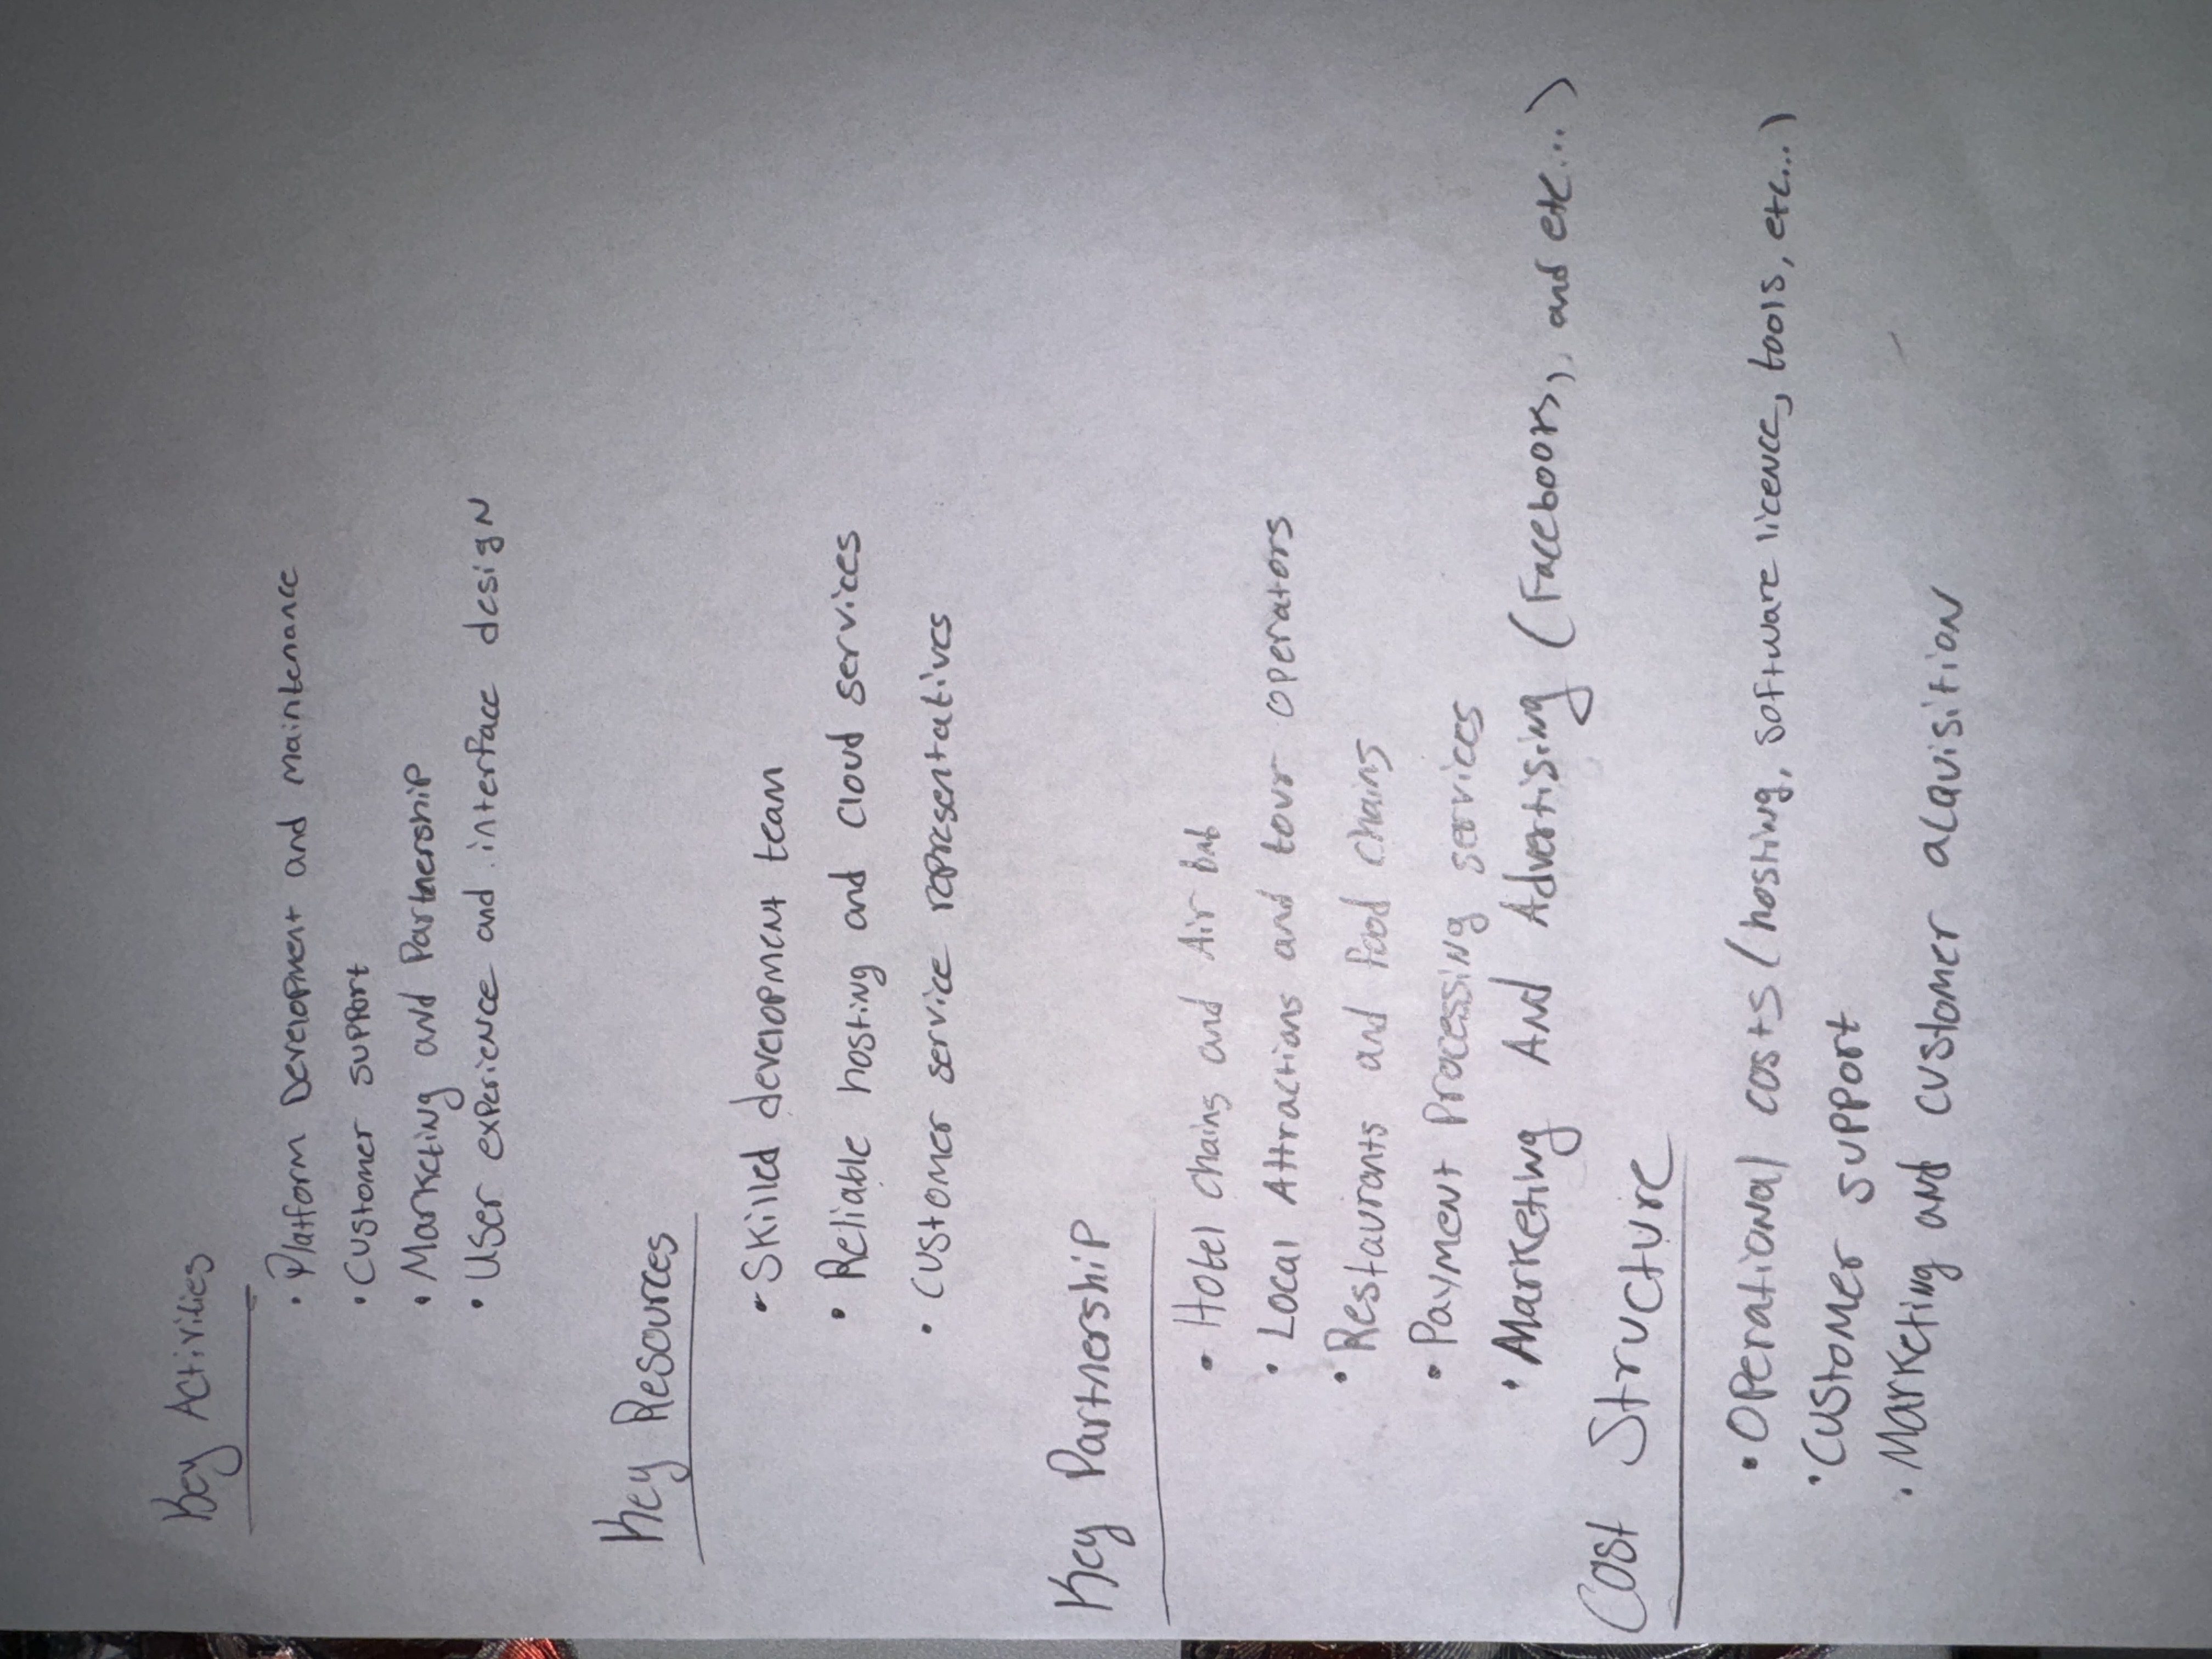 Key Activities
• Platform Development and maintenance
• Customer support
• Marketing and Partnership
• User experience and interface design
Key Resources
• Skilled development team
• Reliable hosting and cloud services
• Customer service representatives
Key Partnership
• Hotel chains and Air bnb
• Local Attractions and tour operators
• Restaurants and food chains
• Payment Processing services
• Marketing And Advertising (Facebook, and etc...)
Cost Structure
• Operational costs (hosting, software licence, tools, etc...)
• Customer support
• Marketing and customer acquisition